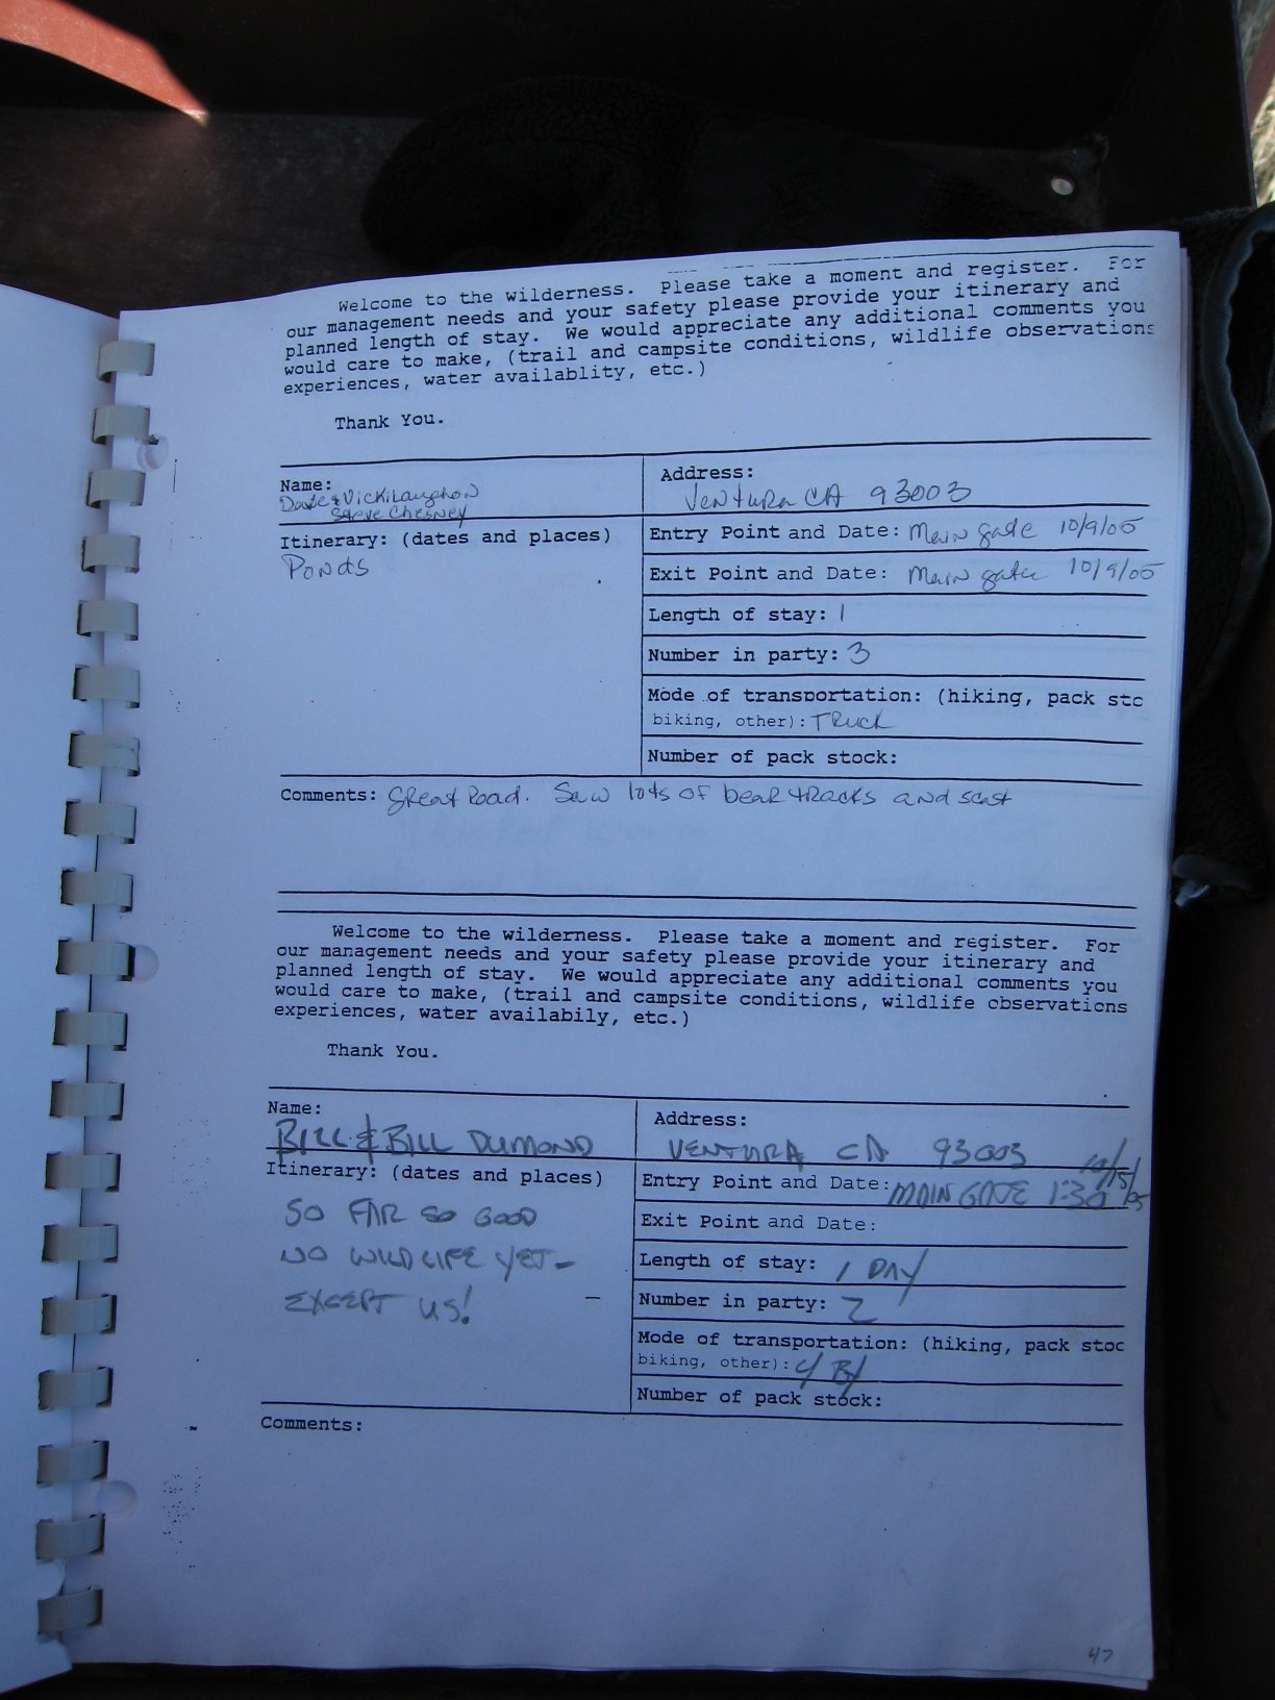 Welcome to the wilderness. Please take a moment and register. For
our management needs and your safety please provide your itinerary and
planned length of stay. We would appreciate any additional comments you
would care to make, (trail and campsite conditions, wildlife observations
experiences, water availablity, etc.)
Thank You.
Name:
Dave & Vicki Laughon
Steve Chesney
Address:
Ventura CA 93003
Itinerary: (dates and places)
Ponds
Entry Point and Date: Main gate 10/9/05
Exit Point and Date: Main gate 10/9/05
Length of stay: 1
Number in party: 3
Mode of transportation: (hiking, pack stc
biking, other): Truck
Number of pack stock:
Comments: Great Road. Saw lots of bear tracks and scat
Welcome to the wilderness. Please take a moment and register. For
our management needs and your safety please provide your itinerary and
planned length of stay. We would appreciate any additional comments you
would care to make, (trail and campsite conditions, wildlife observations
experiences, water availabily, etc.)
Thank You.
Name:
BILL & BILL DUMOND
Address:
VENTURA CA 93003
Itinerary: (dates and places)
SO FAR SO GOOD
NO WILDLIFE YET-
EXCEPT US!
Entry Point and Date: MAIN GATE 1:30 10/15/05
Exit Point and Date:
Length of stay: 1 DAY
Number in party: 2
Mode of transportation: (hiking, pack stoc
biking, other):
Number of pack stock:
Comments:
47